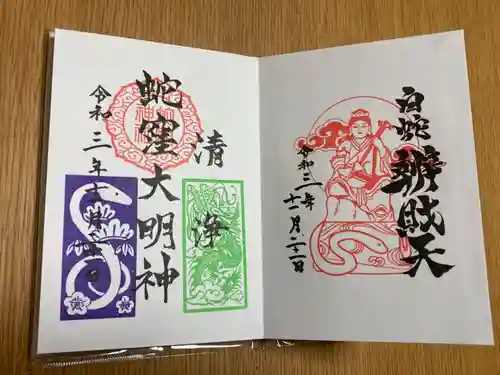 白蛇辨財天
令和三年
十一月二十一日
清浄
蛇窪大明神
令和三年十一月二十一日